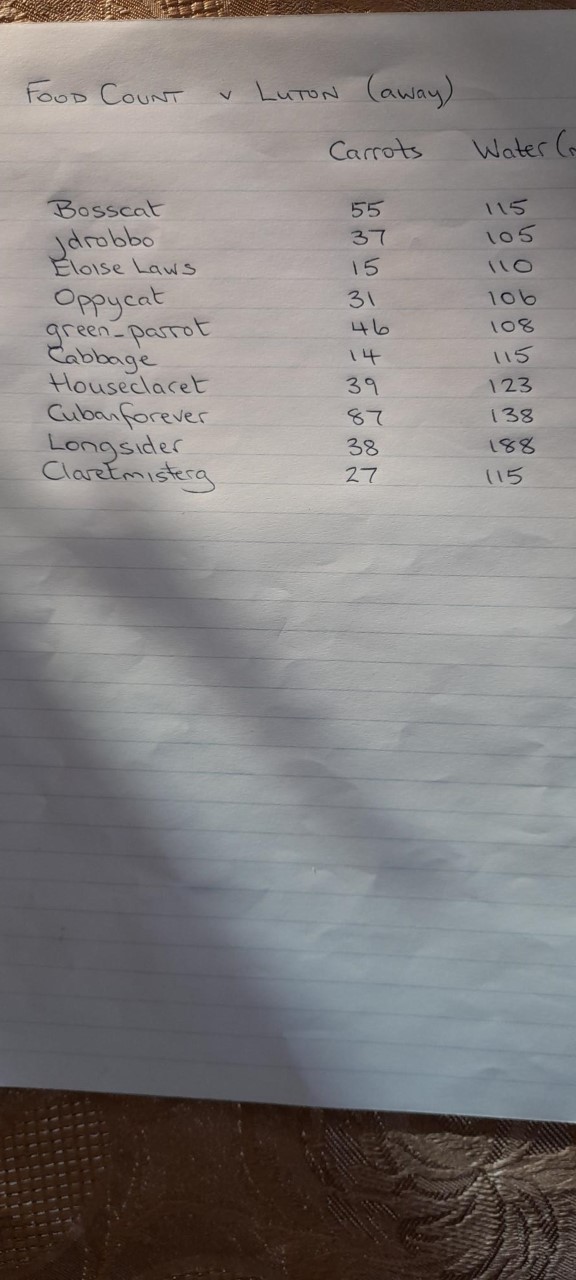 FOOD COUNT v LUTON (away)
Carrots Water (
Bosscat 55 115
jdrobbo 37 105
Eloise Laws 15 110
Oppycat 31 106
green-parrot 46 108
Cabbage 14 115
Houseclaret 39 123
Cubanforever 87 138
Longsider 38 188
Claretmisterg 27 115